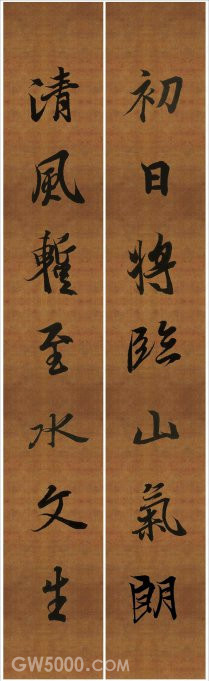 初日將臨山氣朗
清風暫至水文生
GW5000.COM